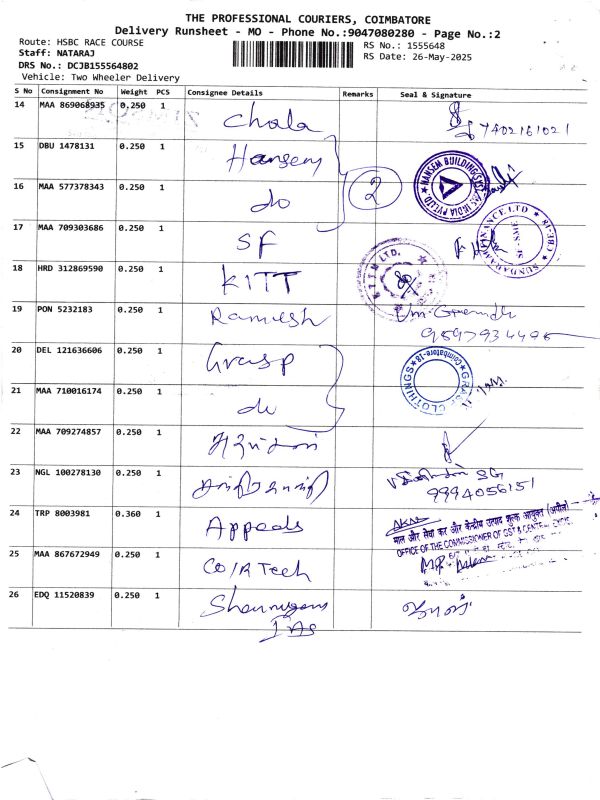 THE PROFESSIONAL COURIERS, COIMBATORE
Delivery Runsheet - MO - Phone No.:9047080280 - Page No.:2
Route: HSBC RACE COURSE
RS No.: 1555648
Staff: NATARAJ
RS Date: 26-May-2025
DRS No.: DCJB155564802
Vehicle: Two Wheeler Delivery
S No Consignment No Weight PCS Consignee Details Remarks Seal & Signature
14 MAA 869068935 0.250 1 Chola 7402161021
15 DBU 1478131 0.250 1 Hansem
16 MAA 577378343 0.250 1 do 2 HANSEM BUILDING INDIA PVT LTD
17 MAA 709303686 0.250 1 SF SUNDARAM FINANCE LTD CBE-18
18 HRD 312869590 0.250 1 KITT K.I.T.T.M LTD.
19 PON 5232183 0.250 1 Ramesh
20 DEL 121636606 0.250 1 Grasp
21 MAA 710016174 0.250 1 do GRASP CLOTHINGS Coimbatore-18
22 MAA 709274857 0.250 1
23 NGL 100278130 0.250 1 9994056151
24 TRP 8003981 0.360 1 Appeals
माल और सेवा कर और केन्द्रीय उत्पाद शुल्क आयुक्त (अपील)
OFFICE OF THE COMMISSIONER OF GST & CENTRAL EXCISE
25 MAA 867672949 0.250 1 Tech
26 EDQ 11520839 0.250 1 Shanmugam
IAS